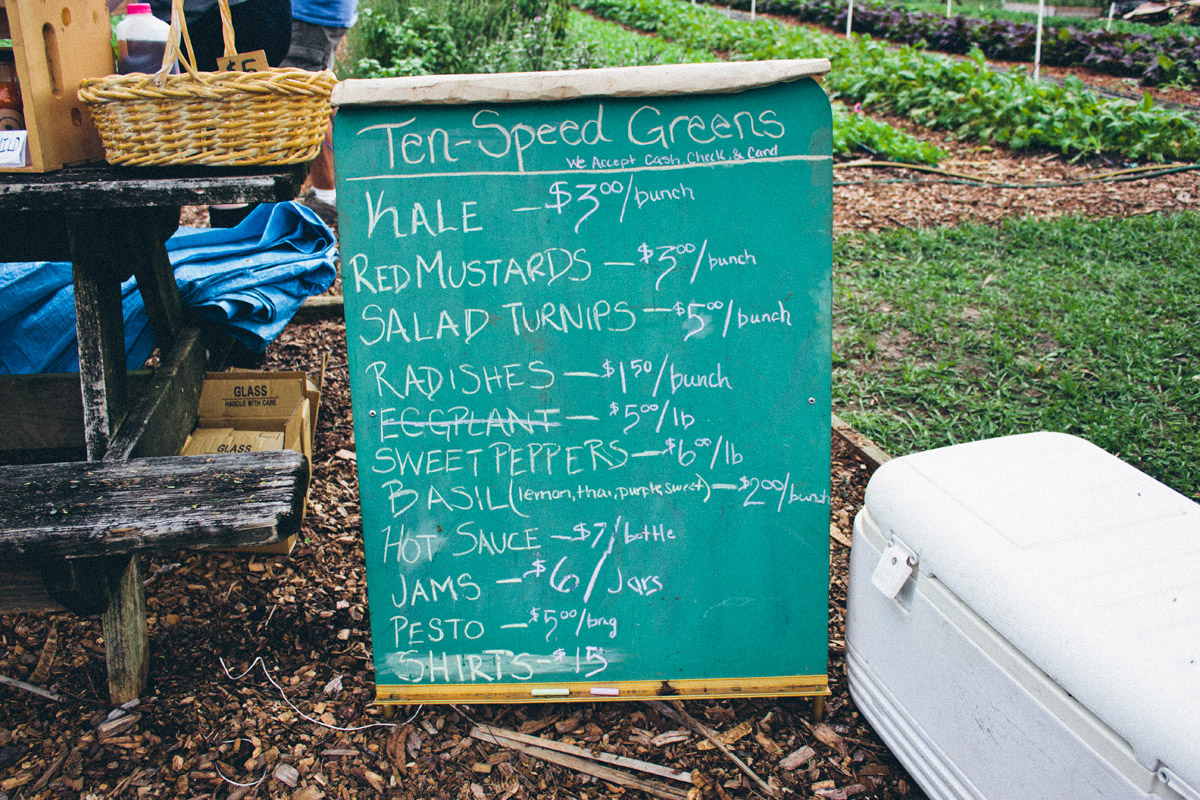 Ten-Speed Greens
We Accept Cash, Check, & Card
KALE — $3.00/bunch
RED MUSTARDS — $3.00/bunch
SALAD TURNIPS — $5.00/bunch
RADISHES — $1.50/bunch
EGGPLANT — $5.00/lb
SWEET PEPPERS — $6.00/lb
BASIL (lemon, thai, purple, sweet) — $2.00/bunch
HOT SAUCE — $7/bottle
JAMS — $6/Jars
PESTO — $5.00/bag
SHIRTS - $15
GLASS
HANDLE WITH CARE
GLASS